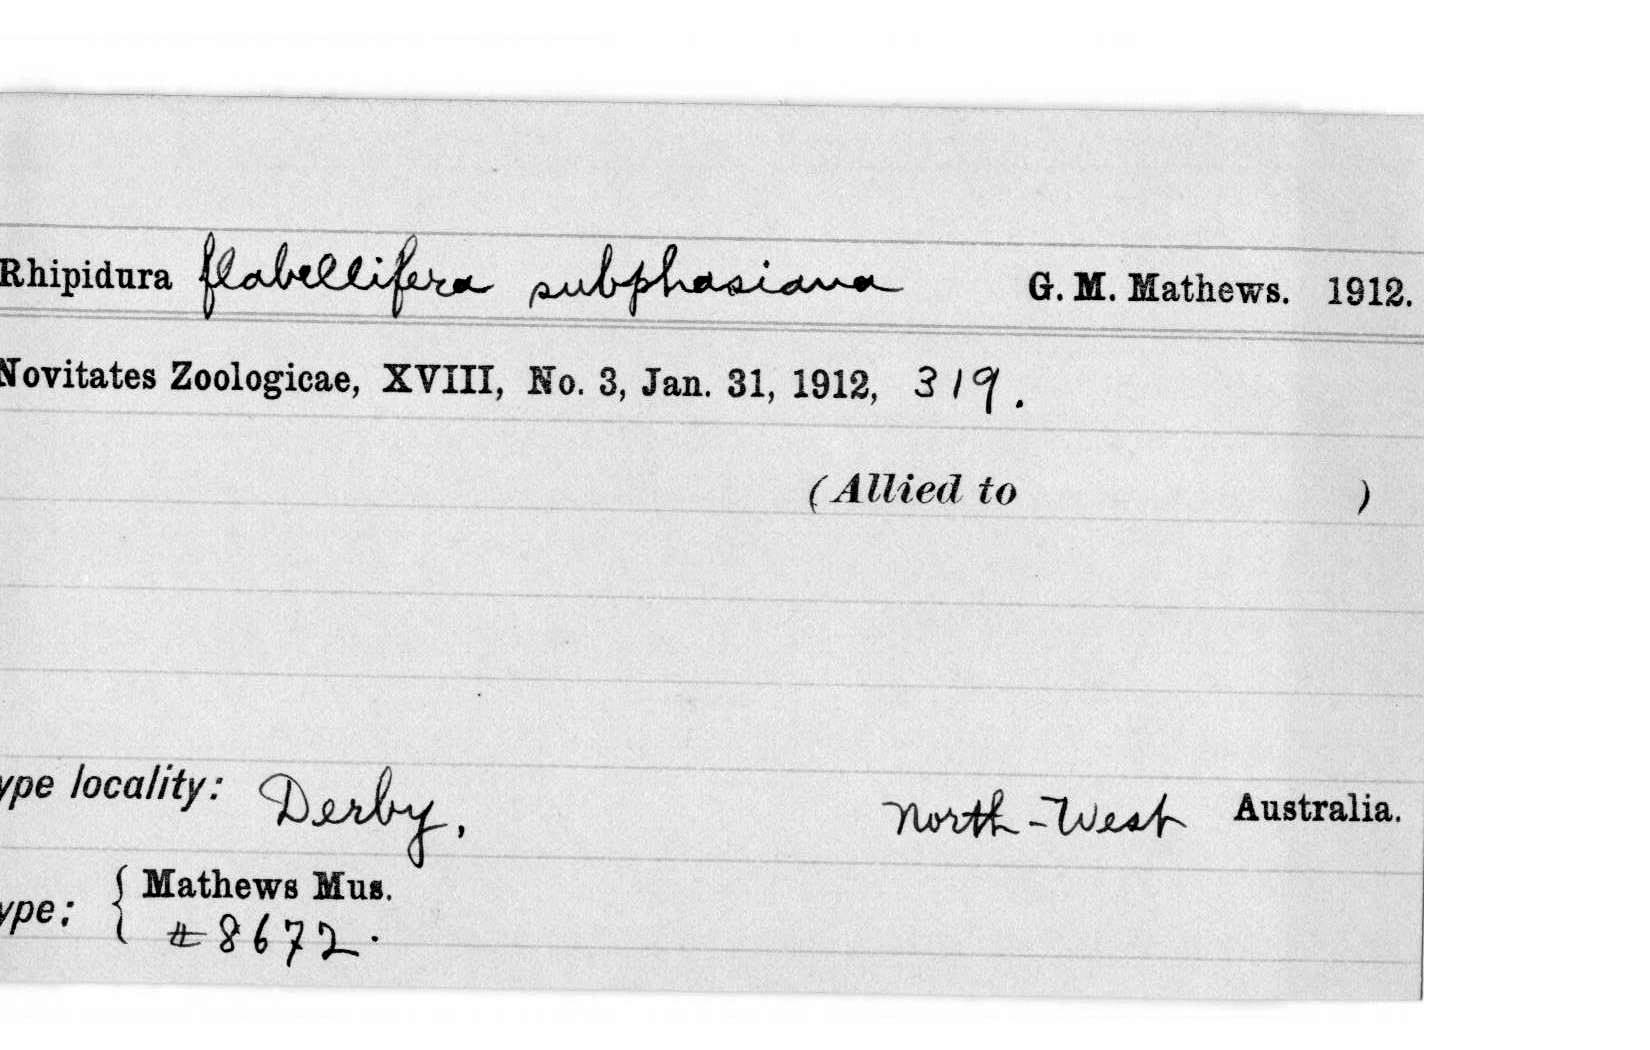 Rhipidura flabellifera subphasiana G. M. Mathews. 1912.
Novitates Zoologicae, XVIII, No. 3, Jan. 31, 1912, 319.
(Allied to )
ype locality: Derby, North-West Australia.
ype: { Mathews Mus.
#8672.